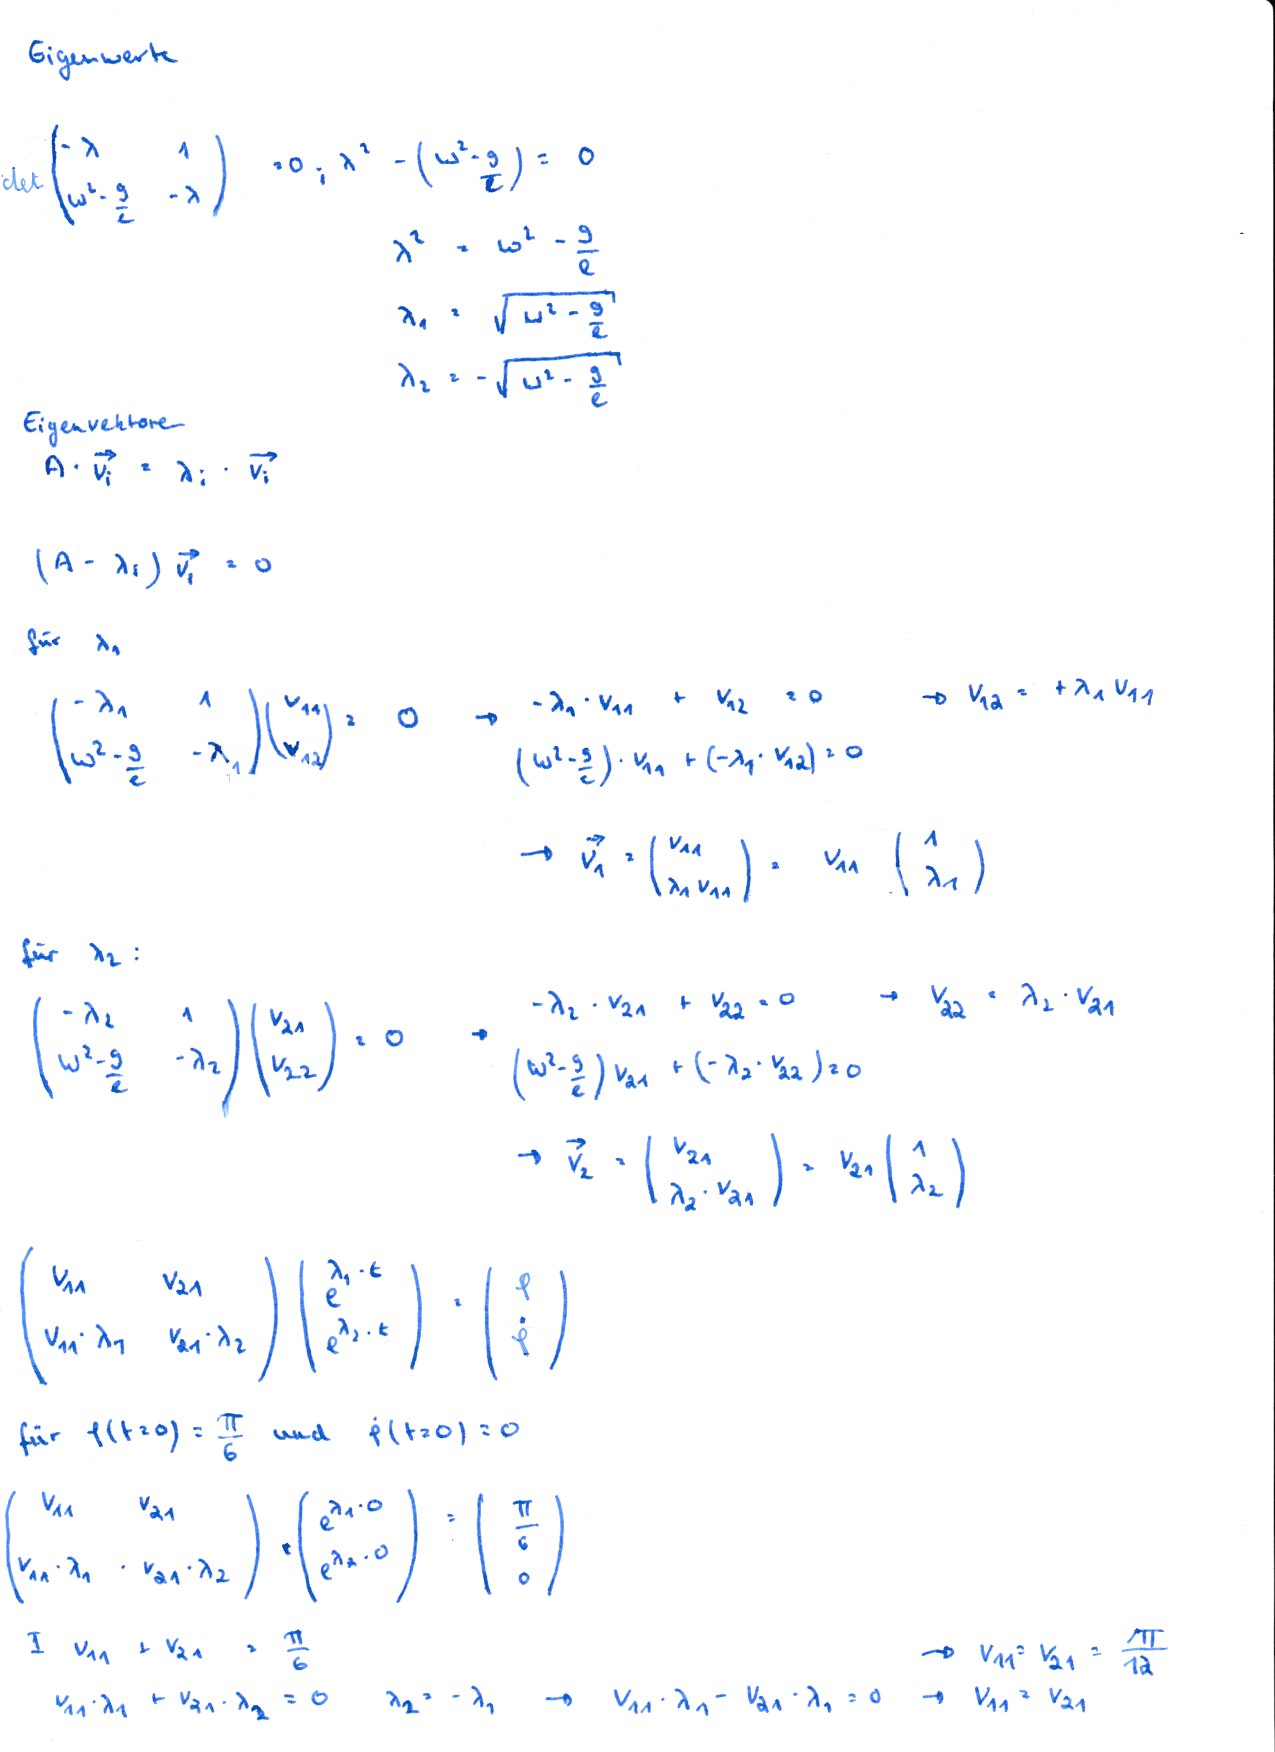 Eigenwerte
det ( -λ 1 ; ω² - g/ℓ -λ ) = 0 ; λ² - (ω² - g/ℓ) = 0
λ² = ω² - g/ℓ
λ₁ = √(ω² - g/ℓ)
λ₂ = -√(ω² - g/ℓ)
Eigenvektoren
A · v⃗ᵢ = λᵢ · v⃗ᵢ
(A - λᵢ) v⃗ᵢ = 0
für λ₁
( -λ₁ 1 ; ω² - g/ℓ -λ₁ ) ( v₁₁ ; v₁₂ ) = 0 → -λ₁ · v₁₁ + v₁₂ = 0 → v₁₂ = +λ₁ v₁₁
(ω² - g/ℓ) · v₁₁ + (-λ₁ · v₁₂) = 0
→ v⃗₁ = ( v₁₁ ; λ₁ v₁₁ ) = v₁₁ ( 1 ; λ₁ )
für λ₂ :
( -λ₂ 1 ; ω² - g/ℓ -λ₂ ) ( v₂₁ ; v₂₂ ) = 0 → -λ₂ · v₂₁ + v₂₂ = 0 → v₂₂ = λ₂ · v₂₁
(ω² - g/ℓ) v₂₁ + (-λ₂ · v₂₂) = 0
→ v⃗₂ = ( v₂₁ ; λ₂ · v₂₁ ) = v₂₁ ( 1 ; λ₂ )
( v₁₁ v₂₁ ; v₁₁ · λ₁ v₂₁ · λ₂ ) ( e^(λ₁ · t) ; e^(λ₂ · t) ) = ( φ ; φ̇ )
für φ(t=0) = π/6 und φ̇(t=0) = 0
( v₁₁ v₂₁ ; v₁₁ · λ₁ · v₂₁ · λ₂ ) · ( e^(λ₁ · 0) ; e^(λ₂ · 0) ) = ( π/6 ; 0 )
I v₁₁ + v₂₁ = π/6 → v₁₁ = v₂₁ = π/12
v₁₁ · λ₁ + v₂₁ · λ₂ = 0 λ₂ = -λ₁ → v₁₁ · λ₁ - v₂₁ · λ₁ = 0 → v₁₁ = v₂₁